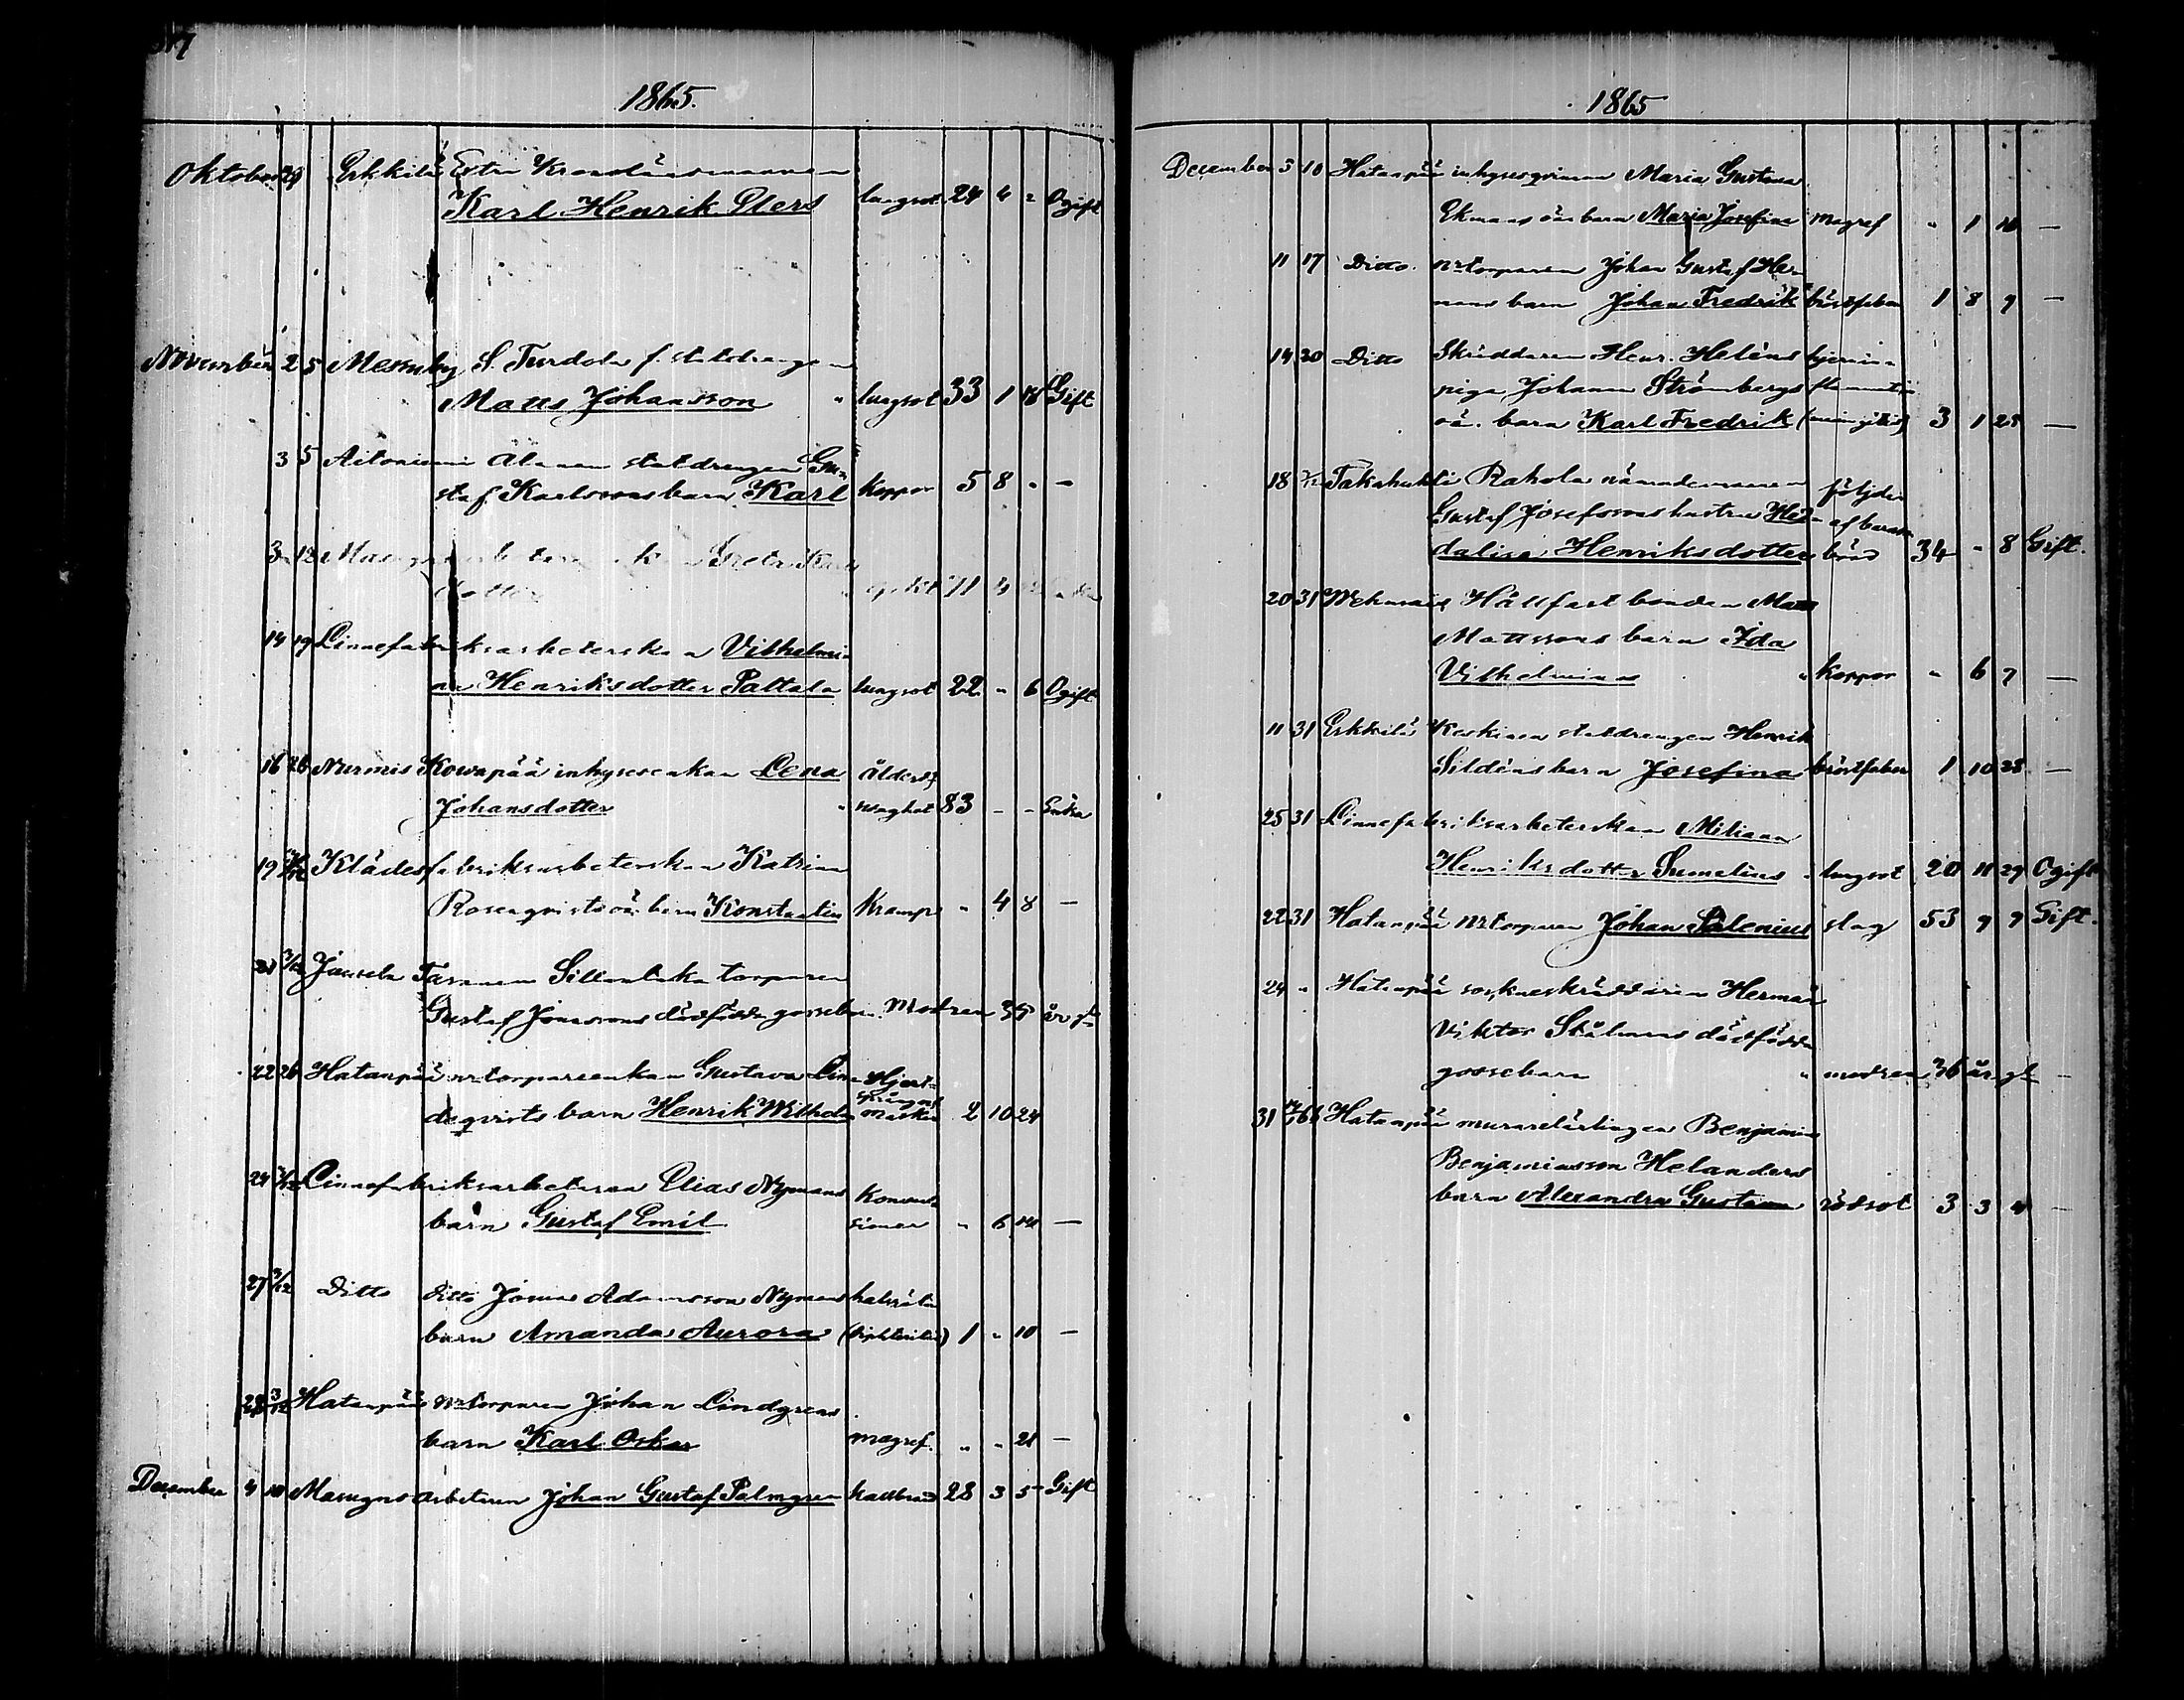 1865.
Oktober 29 Erkkilä Extra Kronolänsmannen
Karl Henrik Elers lungsot 24 4 2 Ogift
November 2 5 Messuby S. Turdola f. statdrängen
Matts Johansson lungsot 33 1 18 Gift
3 5 Aitoniemi Alanen statdrängen Gu
staf Karlssons barn Karl Koppor 5 8 " —
3 12 Greta
dotter 71 4
14 19 Linnefabriksarbeterskan Vilhelmi
na Henriksdotter Pattala lungsot 22 " 6 Ogift
16 26 Nurmis Kowapää inhysesenkan Lena ålderd.
Johansdotter swaghet 83 - - Enka
19 Klädesfabriksarbeterskan Katrina
Rosenqvists oä. barn Konstantin Kramp " 4 8 —
3/12 Torparen
Gustaf Jonassons dödfödda gossebarn. Modren 35 år gl
22 26 Hatanpää Gustava Lin Hjert-
deqvists barn Henrik Wilhelm 2 10 24
24 3/12 Linnefabriksarbetaren Elias Nymans Konvul
barn Gustaf Emil sioner " 6 14 —
27 3/12 Ditto ditto Jonas Adamsson Nymans
barn Amanda Aurora (diphteritis) 1 " 10 —
28 3/12 Hatanpää Johan Lindgrens
barn Karl Oskar magref. " " 21 —
December 4 10 Masugnsarbetaren Johan Gustaf Palmgren kallbrand 28 3 5 Gift
1865
December 5 10 Hatanpää inhysesqvinnan Maria Gustava
Ekmans oä. barn Maria Josefina magref " 1 10 —
11 17 Ditto. Johan Gustaf Her
mans barn Johan Fredrik bröstfeber 1 8 9 —
14 30 Ditto Skräddaren Henr. Heléns hjernin
piga Johanna Strömbergs flammation
oä. barn Karl Fredrik (meningitis) 3 1 25 —
18 Takahuhti Rahola nämndemannen följder
Gustaf Josefssons hustru Hed- af barns
daliza Henriksdotter börd 34 " 8 Gift.
20 31 Wehmais Hållfast bonden Matts
Mattssons barn Ida
Vilhelmina " koppor " 6 7 —
11 31 Erkkilä Keskinen statdrengen Henrik
Sildéns barn Josefina bröstfeber 1 10 28 —
25 31 Linnefabriksarbeterskan Miliana
Henriksdotter Sumelius " lungsot 20 11 29 Ogift
22 31 Hatanpää Johan Salenius slag 53 9 9 Gift.
24 " Hatanpää sockneskräddaren Herman
Viktor Stålmans dödfödda
gossebarn " modren 36 år gl —
31 Hatanpää murarelärlingen Benjamin
Benjaminsson Helanders
barn Alexandra Gustava rödsot 3 3 4 —